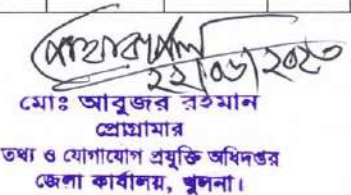 ২২/০৬/২০২৩
মোঃ আবুজর রহমান
প্রোগ্রামার
তথ্য ও যোগাযোগ প্রযুক্তি অধিদপ্তর
জেলা কার্যালয়, খুলনা।